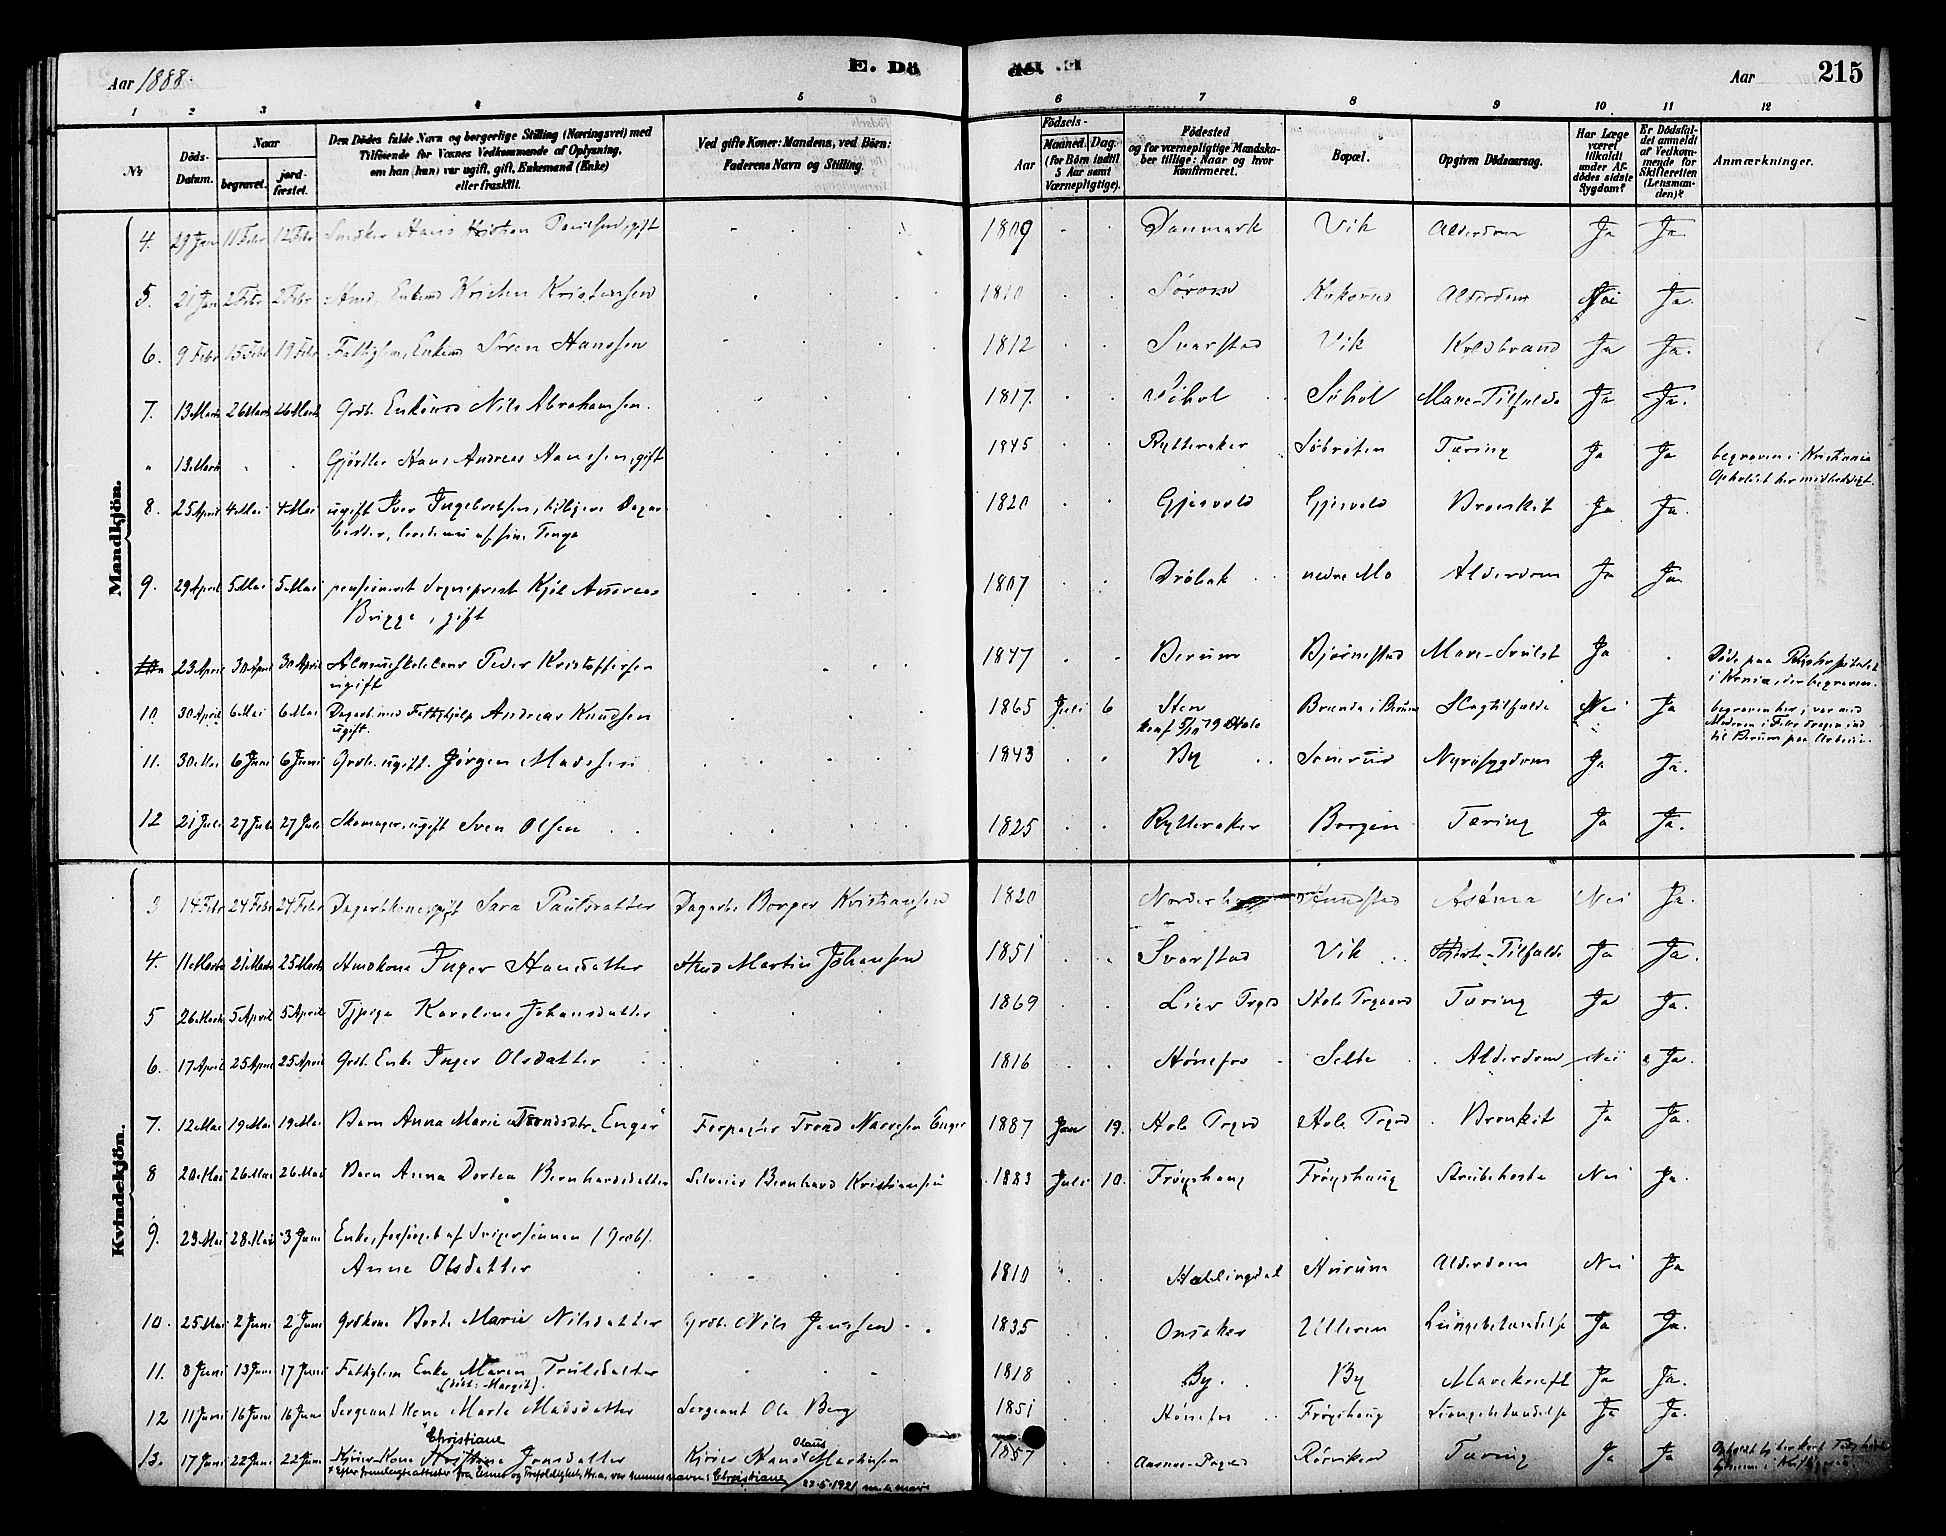 Aar 1888. E. Dö
de. E. Aar 215
1 2 3 4 5 6 7 8 9 10 11 12
No
Döds-Datum.
Naar
begravet. jord-fæstet.
Den Dödes fulde Navn og borgerlige Stilling (Næringsvei) med
Tilföiende for Voxnes Vedkommende af Oplysning,
om han (hun) var ugift, gift, Enkemand (Enke)
eller fraskilt.
Ved gifte Koner: Mandens, ved Börn:
Faderens Navn og Stilling.
Födsels-
Aar Maaned. Dag.
(for Börn indtil
5 Aar samt
Værnepligtige).
Födested
og for værnepligtige Mandska-
ber tillige: Naar og hvor
konfirmeret.
Bopæl.
Opgiven Dödsaarsag.
Har Læge
været
tilkaldt
under Af-
dödes sidste
Sygdom?
Er Dödsfal-
det anmeldt
af Vedkom-
mende for
Skifteretten
(Lensman-
den)?
Anmærkninger.
Mandkjön.
4. 29 Jan 11 Febr 12 Febr Hans Kristen gift 1809 Danmark Vik Alderdom Ja Ja
5. 21 Jan 2 Febr 2 Febr Enkemd Kristen Kristensen 1810 Sørom Alderdom Nei Ja.
6. 9 Febr 15 Febr 19 Febr Fattiglem, Enkemd Søren Hanssen 1812 Svarstad Vik Koldbrand Ja Ja.
7. 13 Marts 26 Marts 26 Marts Grdb. Enkemd Nils Abrahamsen. 1817. Søhol Mave-Tilfælde Ja Ja.
" 13 Marts Gjørtler Hans Andreas Hanssen, gift 1845 Rytteraker Søbråten Tæring Ja Ja begraven i Kristiania
Ophold her midlertidigt.
8. 25 April 4 Mai 4 Mai ugift Iver Ingebretsen, tidligere Dagar-
beider, levede nu af sine Penge 1820 Gjesvold Gjesvold Bronkit Ja Ja.
9. 29 April 5 Mai 5 Mai pensioneret Sogneprest Kjel Andreas
Brigge, gift 1807 Drøbak nedre Mo Alderdom Ja Ja
23 April 30 April 30 April Almueskolelærer Peder Kristoffersen
ugift 1847 Berum Bjørnestad Mave-Svulst Ja Døde paa Rigshospitalet
i Krnia, der begraven.
10 30 April 6 Mai 6 Mai Dagarb. med Fattighjælp Andreas Knudsen
ugift. 1865 Juli 6 Sten
Konf 5/10 79 Hole Brenda i Berum Slagtilfælde Nei Ja begraven her, var med
til Berum paa Arbeide.
11. 30 Mai 6 Juni 6 Juni Grdb. ugift. Jørgen Madssen 1843 By Sonerud Nyresygdom Ja Ja.
12 21 Juli 27 Juli 27 Juli Skomager, ugift Sven Olsen 1825 Rytteraker Borgen Tæring Ja Ja.
Kvindekjön.
3 14 Febr 24 Febr 24 Febr Dagarbkone, gift Sara Paulsdatter Dagarb. Borger Kristiansen 1820 Asthma Nei Ja.
4. 11 Marts 21 Marts 25 Marts Husmkone Inger Hansdatter Husmd Martin Johansen 1851 Svarstad Vik Hjerte-Tilfælde Ja Ja.
5 26 Marts 5 April 5 April Tjpige Karoline Johansdatter 1869 Lier Prgrd Hole Prgaard Tæring Ja Ja.
6. 17 April 25 April 25 April Grdb. Enke Inger Olsdatter 1816 Hønefos Selte Alderdom Nei Ja.
7. 12 Mai 19 Mai 19 Mai Barn Anna Marie Trondsdtr. Enger Forpagter Trond Narvesen Enger 1887 Jan 19. Hole Prgrd Hole Prgrd Bronkit Ja Ja.
8 20 Mai 26 Mai 26 Mai Barn Anna Dortea Bernhardsdatter Selveier Bernhard Kristiansen 1883 Juli 10. Frøyshaug Frøyshaug Strubehoste Nei Ja.
9. 23 Mai 28 Mai 3 Juni Enke, forsørget af Svigersønnen / Grdbs.
Anne Olsdatter 1810 Hallingdal Hurum Alderdom Nei Ja
10. 25 Mai 2 Juni 2 Juni Grdkone Berte Marie Nilsdatter Grdb. Nils Jenssen 1835 Onsaker Ulleren Lungebetændelse Ja Ja.
11. 8 Juni 13 Juni 17 Juni Fattiglem Enke Maren Trulsdatter
(døbt: Margit). 1818 By By Mavekræft Ja Ja.
12 11 Juni 16 Juni 16 Juni Sergeant Kone Marte Madsdatter Sergeant Ole Berg 1851 Hønefos Frøyshaug Lungebetændelse Ja Ja.
13. 17 Juni 22 Juni 22 Juni Kjører-Kone Christiane Jonsdatter Kjører Hans Olaus Martinsen 1857 Aasnes-Prgjed Rørviken Tæring Ja Ja
Christiane 23-5-1921